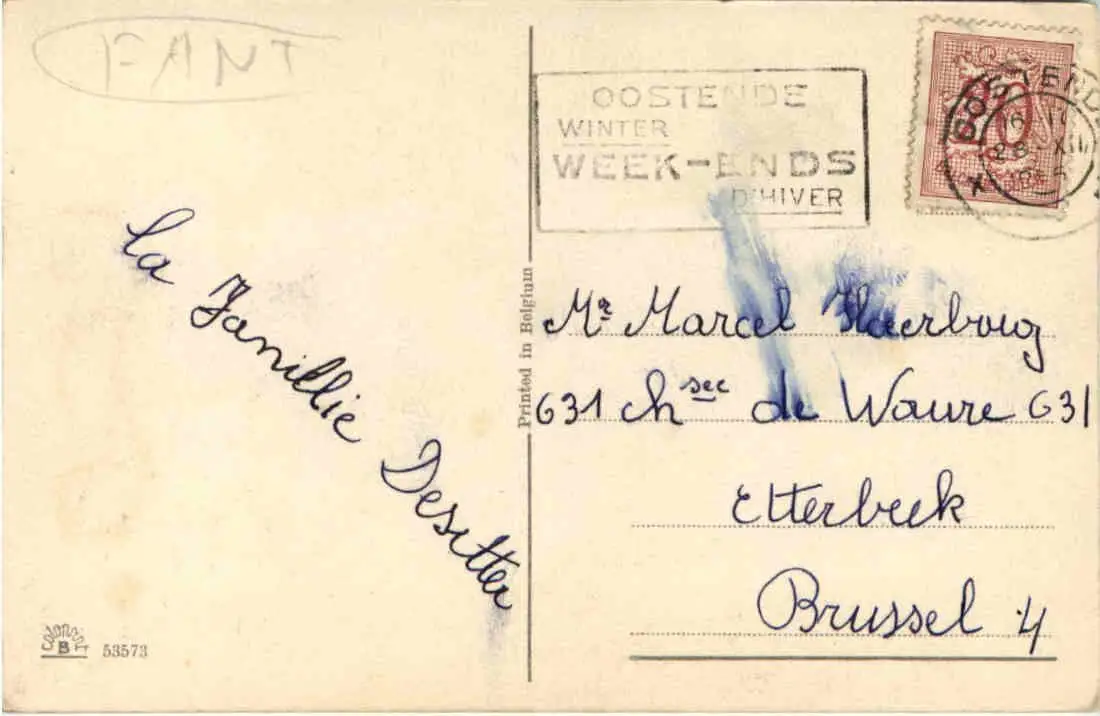 FANT
OOSTENDE
WINTER
WEEK-ENDS
D'HIVER
OOSTENDE
16
28 XII
10
La
Famillie
Desitter
Printed in Belgium
Mr Marcel
631 chsee de Wavre 631
Etterbeek
Brussel 4
colorcolor
B
53573